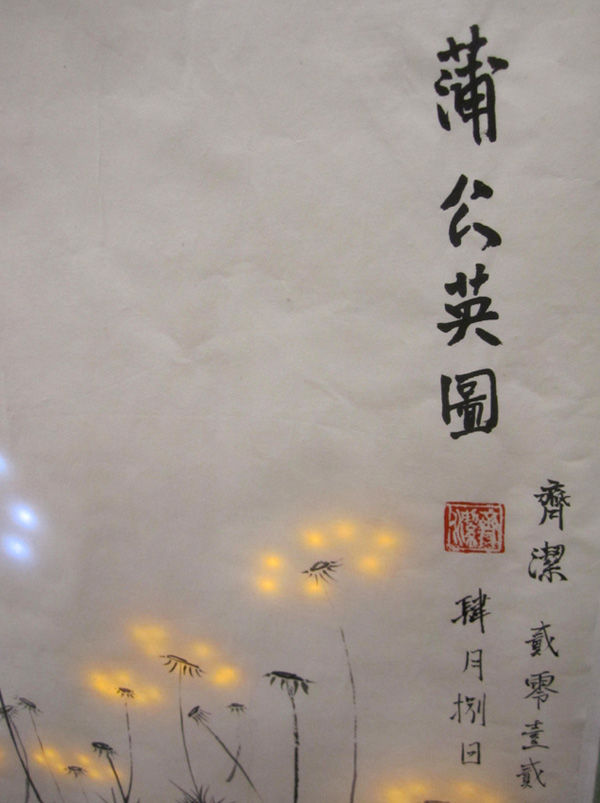 蒲公英圖
齊潔 貳零壹貳
肆月捌日
齊潔